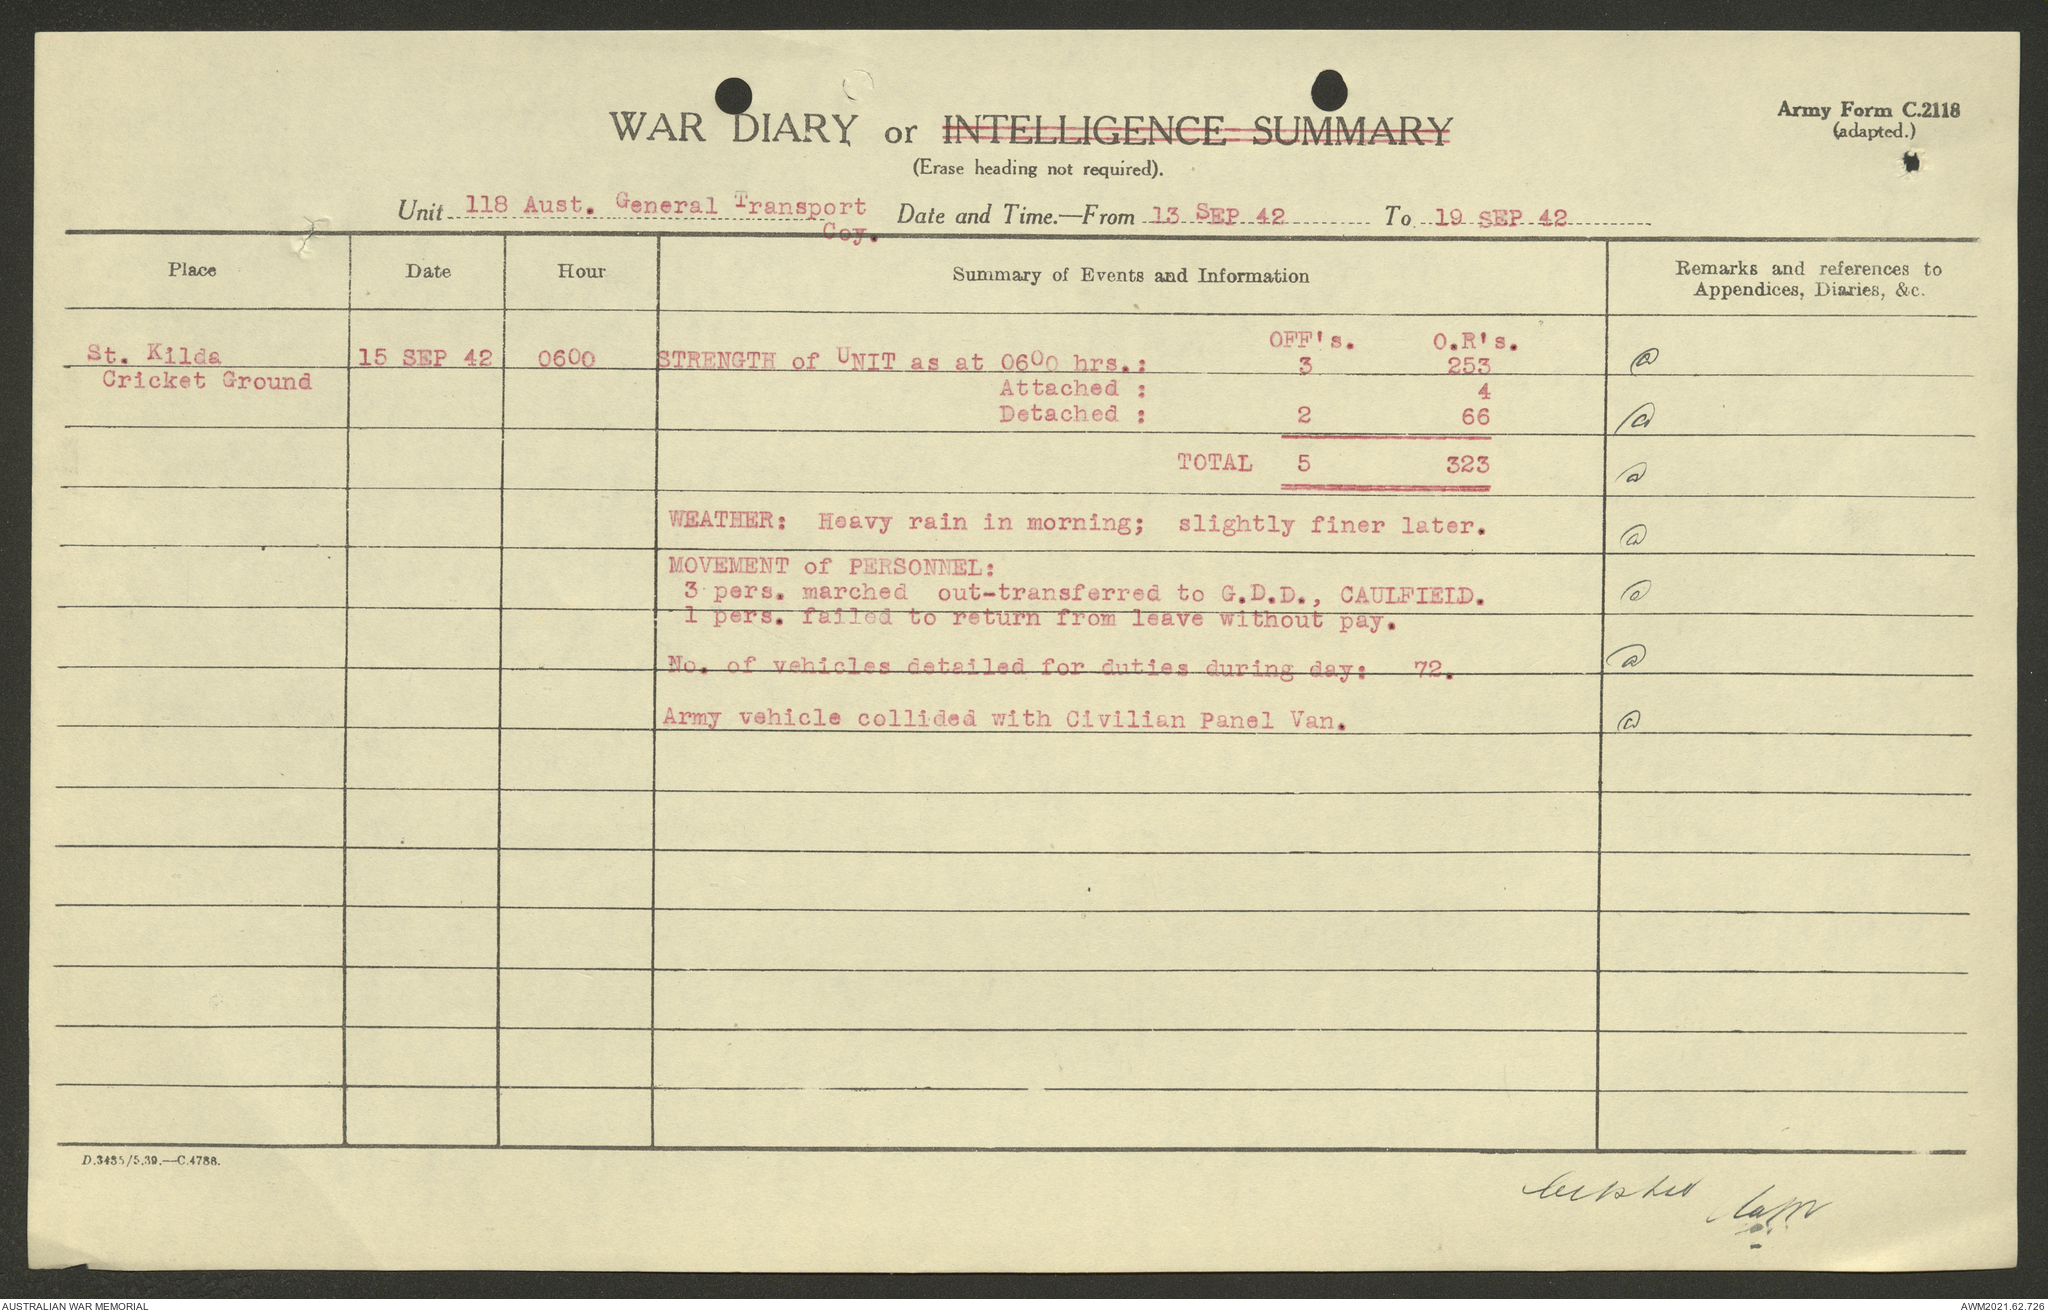 Army Form C.2118
(adapted.)
WAR DIARY or INTELLIGENCE SUMMARY
(Erase heading not required).
Unit 118 Aust. General Transport Coy. Date and Time.—From 13 SEP 42 To 19 SEP 42
Place Date Hour Summary of Events and Information Remarks and references to
Appendices, Diaries, &c.
OFF's. O.R's.
St. Kilda 15 SEP 42 0600 STRENGTH of UNIT as at 0600 hrs.: 3 253
Cricket Ground Attached : 4
Detached : 2 66
TOTAL 5 323
WEATHER: Heavy rain in morning; slightly finer later.
MOVEMENT of PERSONNEL:
3 pers. marched out-transferred to G.D.D., CAULFIELD.
1 pers. failed to return from leave without pay.
No. of vehicles detailed for duties during day: 72.
Army vehicle collided with Civilian Panel Van.
D.3435/5.39.—C.4786.
AUSTRALIAN WAR MEMORIAL AWM2021.62.726